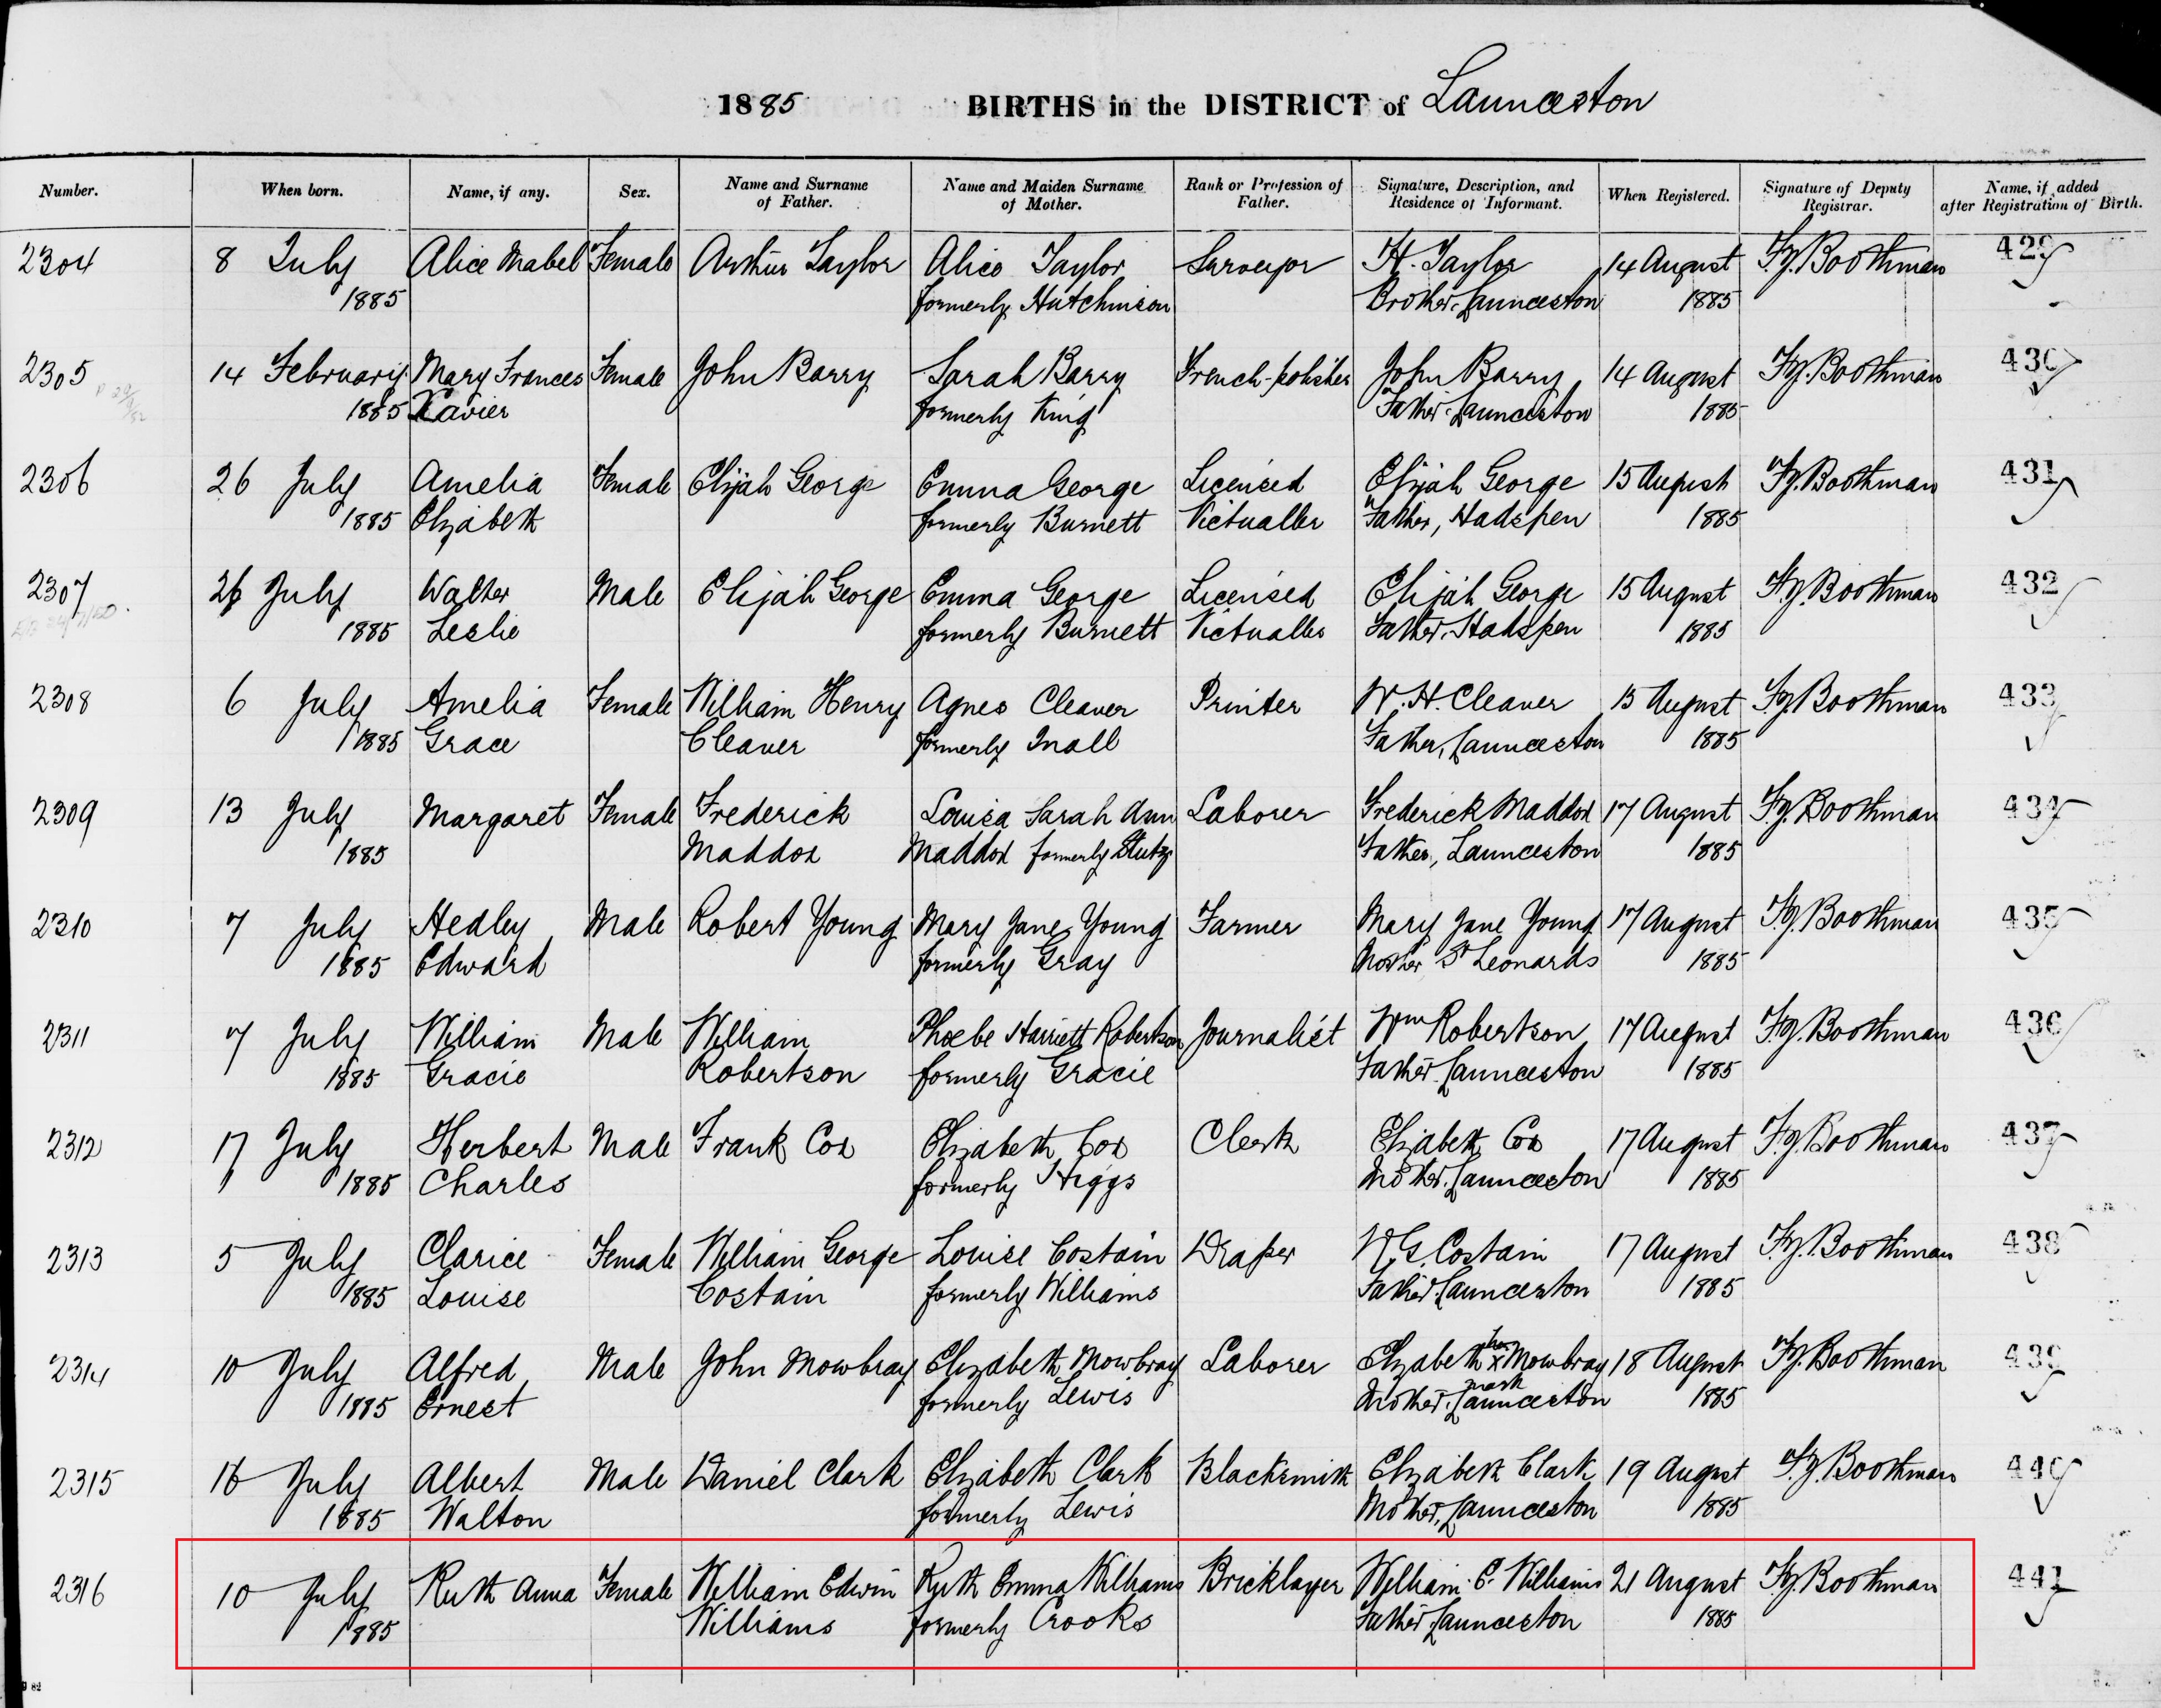 1885 BIRTHS in the DISTRICT of Launceston
Number. When born. Name, if any. Sex. Name and Surname of Father. Name and Maiden Surname of Mother. Rank or Profession of Father. Signature, Description, and Residence of Informant. When Registered. Signature of Deputy Registrar. Name, if added after Registration of Birth.
2304 8 July Alice Mabel Female Arthur Taylor Alice Taylor Surveyor H. Taylor 14 August F.G. Boothman 429
1885 formerly Hutchinson Brother, Launceston 1885
2305 14 February Mary Frances Female John Barry Sarah Barry French-polisher John Barry 14 August F.G. Boothman 430
1885 Xavier formerly King Father, Launceston 1885
2306 26 July Amelia Female Elijah George Emma George Licensed Elijah George 15 August F.G. Boothman 431
1885 Elizabeth formerly Burnett Victualler Father, Hadspen 1885
2307 26 July Walter Male Elijah George Emma George Licensed Elijah George 15 August F.G. Boothman 432
1885 Leslie formerly Burnett Victualler Father, Hadspen 1885
2308 6 July Amelia Female William Henry Agnes Cleaver Printer W. H. Cleaver 15 August F.G. Boothman 433
1885 Grace Cleaver formerly Inall Father, Launceston 1885
2309 13 July Margaret Female Frederick Louisa Sarah Ann Laborer Frederick Maddox 17 August F.G. Boothman 434
1885 Maddox Maddox formerly Stutz Father, Launceston 1885
2310 7 July Hedley Male Robert Young Mary Jane Young Farmer Mary Jane Young 17 August F.G. Boothman 435
1885 Edward formerly Gray Mother St Leonards 1885
2311 7 July William Male William Phoebe Harriett Robertson Journalist Wm Robertson 17 August F.G. Boothman 436
1885 Gracie Robertson formerly Gracie Father, Launceston 1885
2312 17 July Herbert Male Frank Cox Elizabeth Cox Clerk Elizabeth Cox 17 August F.G. Boothman 437
1885 Charles formerly Higgs Mother, Launceston 1885
2313 5 July Clarice Female William George Louise Costain Draper W. G. Costain 17 August F.G. Boothman 438
1885 Louise Costain formerly Williams Father, Launceston 1885
2314 10 July Alfred Male John Mowbray Elizabeth Mowbray Laborer Elizabeth her x mark Mowbray 18 August F.G. Boothman 439
1885 Ernest formerly Lewis Mother, Launceston 1885
2315 16 July Albert Male Daniel Clark Elizabeth Clark Blacksmith Elizabeth Clark 19 August F.G. Boothman 440
1885 Walton formerly Lewis Mother, Launceston 1885
2316 10 July Ruth Anna Female William Edwin Ruth Emma Williams Bricklayer William E. Williams 21 August F.G. Boothman 441
1885 Williams formerly Crooks Father, Launceston 1885